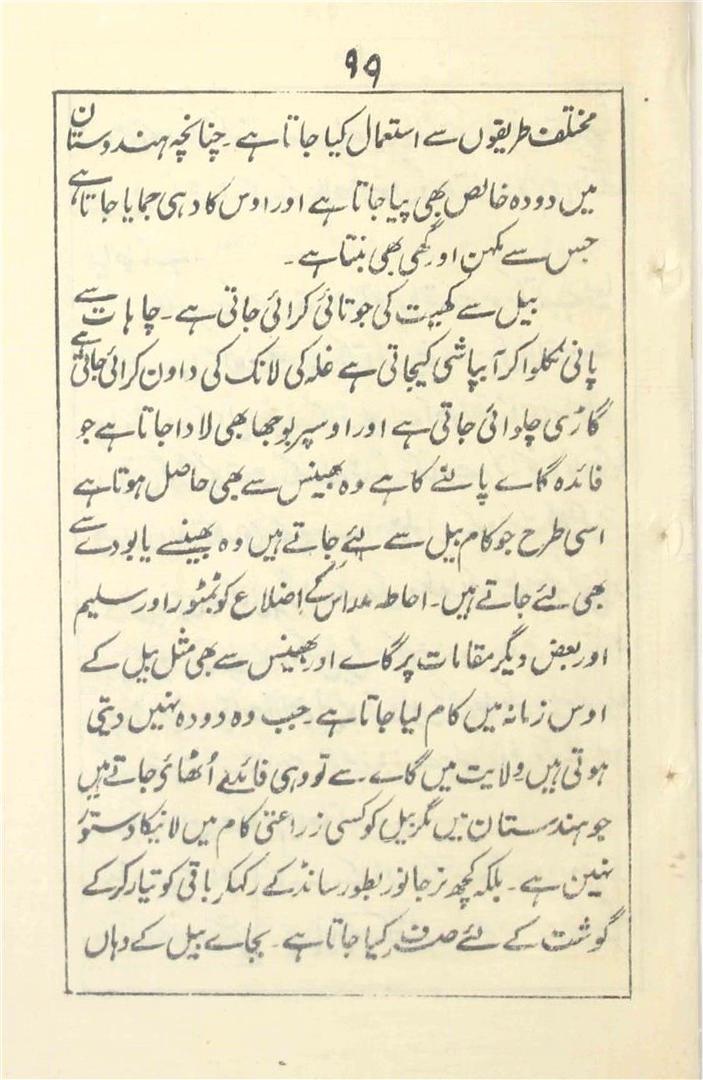 ۹۹
مختلف طریقوں سے استعمال کیا جاتا ہے ۔ چنانچہ ہندوستان
میں دودہ خالص بھی پیا جاتا ہے اور اوس کا دہی جمایا جاتا ہے
جس سے مکہن اور گھی بھی بنتا ہے ۔
بیل سے کھیت کی جوتائی کرائی جاتی ہے ۔ چاہات سے
پانی نکلوا کر آبپاشی کیجاتی ہے غلہ کی لانک کی داون کرائی جاتی ہے
گاڑی چلوائی جاتی ہے اور اوسپر بوجھا بھی لادا جاتا ہے جو
فائدہ گاے پالنے کا ہے وہ بھینس سے بھی حاصل ہوتا ہے
اسی طرح جو کام بیل سے لئے جاتے ہیں وہ بھینسے یا بودے سے
بھی لئے جاتے ہیں ۔ احاطہ مدراس کے اضلاع کوئمبٹور اور سلیم
اور بعض دیگر مقامات پر گاے اور بھینس سے بھی مثل بیل کے
اوس زمانہ میں کام لیا جاتا ہے ۔ جب وہ دودہ نہیں دیتی
ہوتی ہیں ولایت میں گاے سے تو وہی فائدے اُٹھائے جاتے ہیں
جو ہندستان میں مگر بیل کو کسی زراعتی کام میں لانیکا دستور
نہین ہے ۔ بلکہ کچھ نر جانور بطور سانڈ کے رکھکر باقی کو تیار کرکے
گوشت کے لئے صرف کیا جاتا ہے ۔ بجاے بیل کے وہاں